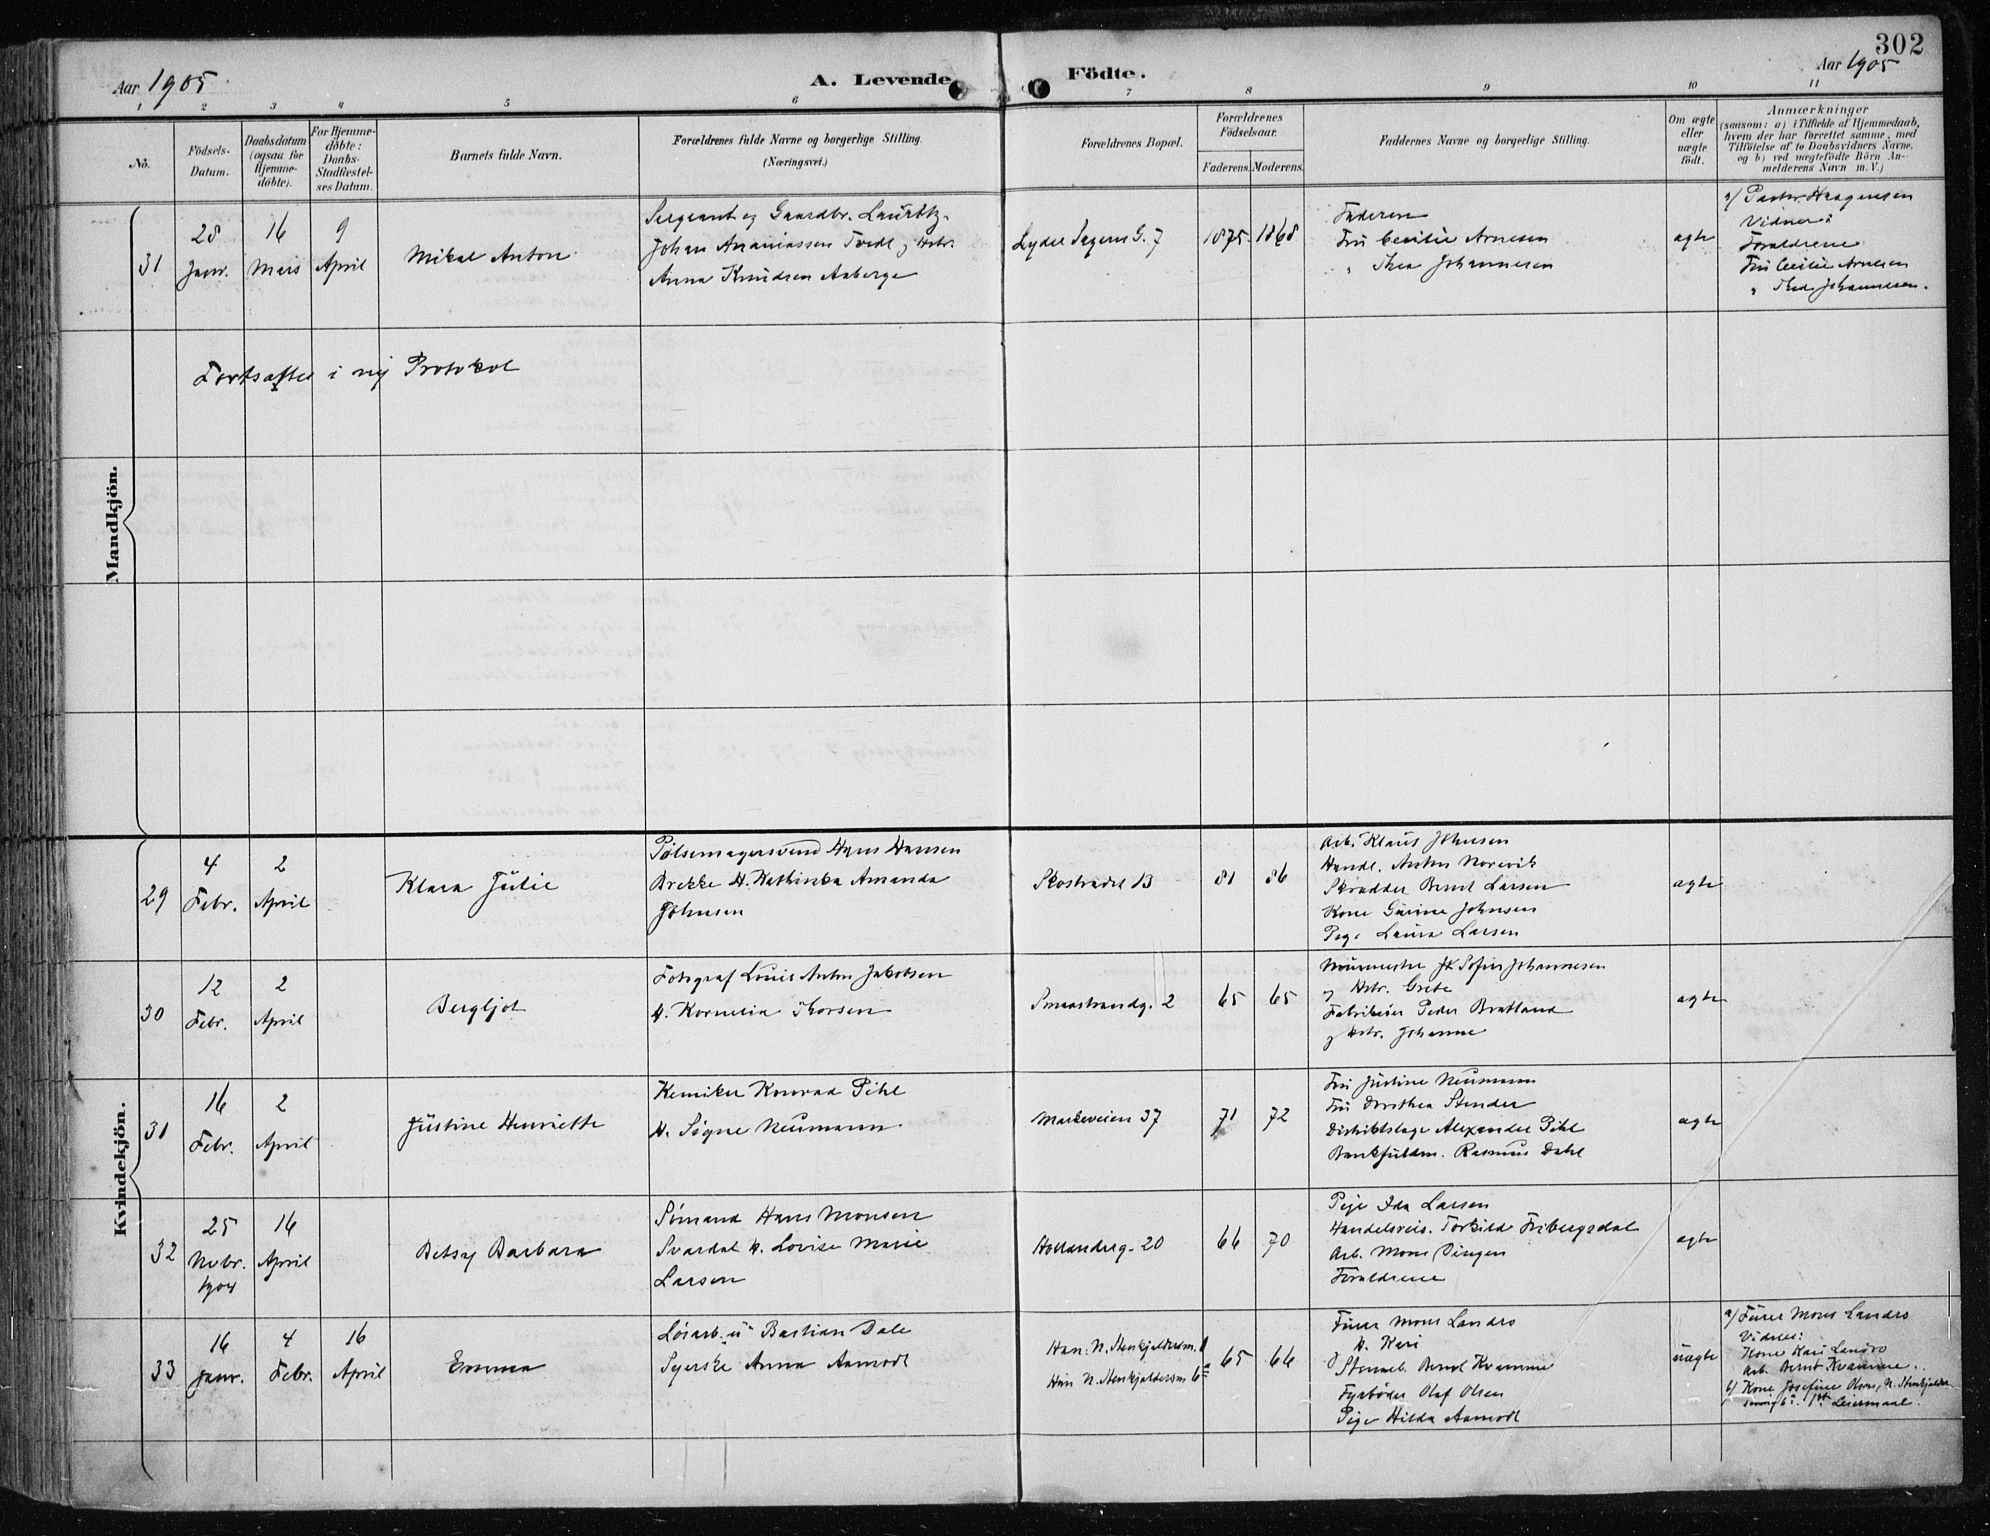 302
Aar 1905
A. Levende Födte.
Aar 1905
1 2 3 4 5 6 7 8 9 10 11
No.
Födsels-Datum.
Daabsdatum (ogsaa for Hjemmedöbte).
For Hjemmedöbte: Daabs-Stadfæstelses Datum.
Barnets fulde Navn.
Forældrenes fulde Navne og borgerlige Stilling.
(Næringsvei.)
Forældrenes Bopæl.
Forældrenes Födselsaar.
Faderens. Moderens.
Faddernes Navne og borgerlige Stilling.
Om ægte eller uægte födt.
Anmærkninger
(saasom: a) i Tilfælde af Hjemmedaab,
hvem der har forrettet samme, med
Tilföielse af to Daabsvidners Navne,
og b) ved uægtefödte Börn An-
melderens Navn m. V.)
Mandkjön.
31
28 Janr.
16 Mars
9 April
Mikal Anton
Sergeant og Gaardbr. Lauritz
Johan Ananiassen Tvedt og Hstr.
Anna Knudsen Aaberge
Lyder Sagens G. 7
1875
1868
Faderen
Fru Cecilie Arnesen
" Thea Johannesen
ægte
a/ Pastor Haagensen
Vidner:
Forældrene
Fru Cecilie Arnesen
" Thea Johannesen.
Fortsættes i ny Protokol
Kvindekjön.
29
4 Febr.
2 April
Klara Julie
Pølsemagersvend Hans Hansen
Brekke H. Kathinka Amanda
Johnsen
Skostrædet 13
81
86
Arb. Klaus Johnsen
Handl. Anton Norevik
Skrædder Bernt Larsen
Kone Gurine Johnsen
Pige Laura Larsen
ægte
30
12 Febr.
2 April
Bergljot
Fotograf Louis Anton Jakobsen
H. Kornelia Thorsen
Smaastrandg. 2
65
65
Murmester Sofus Johannesen
og Hstr. Grete
Fabrikeier Peder Bratland
og Hstr. Johanne
ægte
31
16 Febr.
2 April
Justine Henriette
Kemiker Konrad Pihl
H. Signe Neumann
Markeveien 37
71
72
Fru Justine Neumann
Fru Dorothea Stender
Distriktslæge Alexander Pihl
Bankfuldm. Rasmus Dahl
ægte
32
25 Novbr. 1904
16 April
Betsy Barbara
Sømand Hans Monsen
Svardal H. Lovise Marie
Larsen
Hollenderg. 20
66
70
Pige Ida Larsen
Handelsreis. Torkilde Fribergsdal
Arb. Mons
Forældrene
ægte
33
16 Janr.
4 Febr.
16 April
Emma
Løsarb. u Bastian Dale
Syerske Anna Aamodt
Han: N. Stenkjeldersm.
Hun N. Stenkjeldersm 6
65
66
Furer Mons Landro
H. Kari
Bernt Kvamme
Fyrbøder Olaf Olsen
Pige Hilda Aamodt
uægte
a/ Furer Mons Landro
Vidner:
Kone Kari Landro
Arb. Bernt Kvamme.
b/ Kone Josefine Olsen, N. Stenkjelder
1ste Leiermaal.